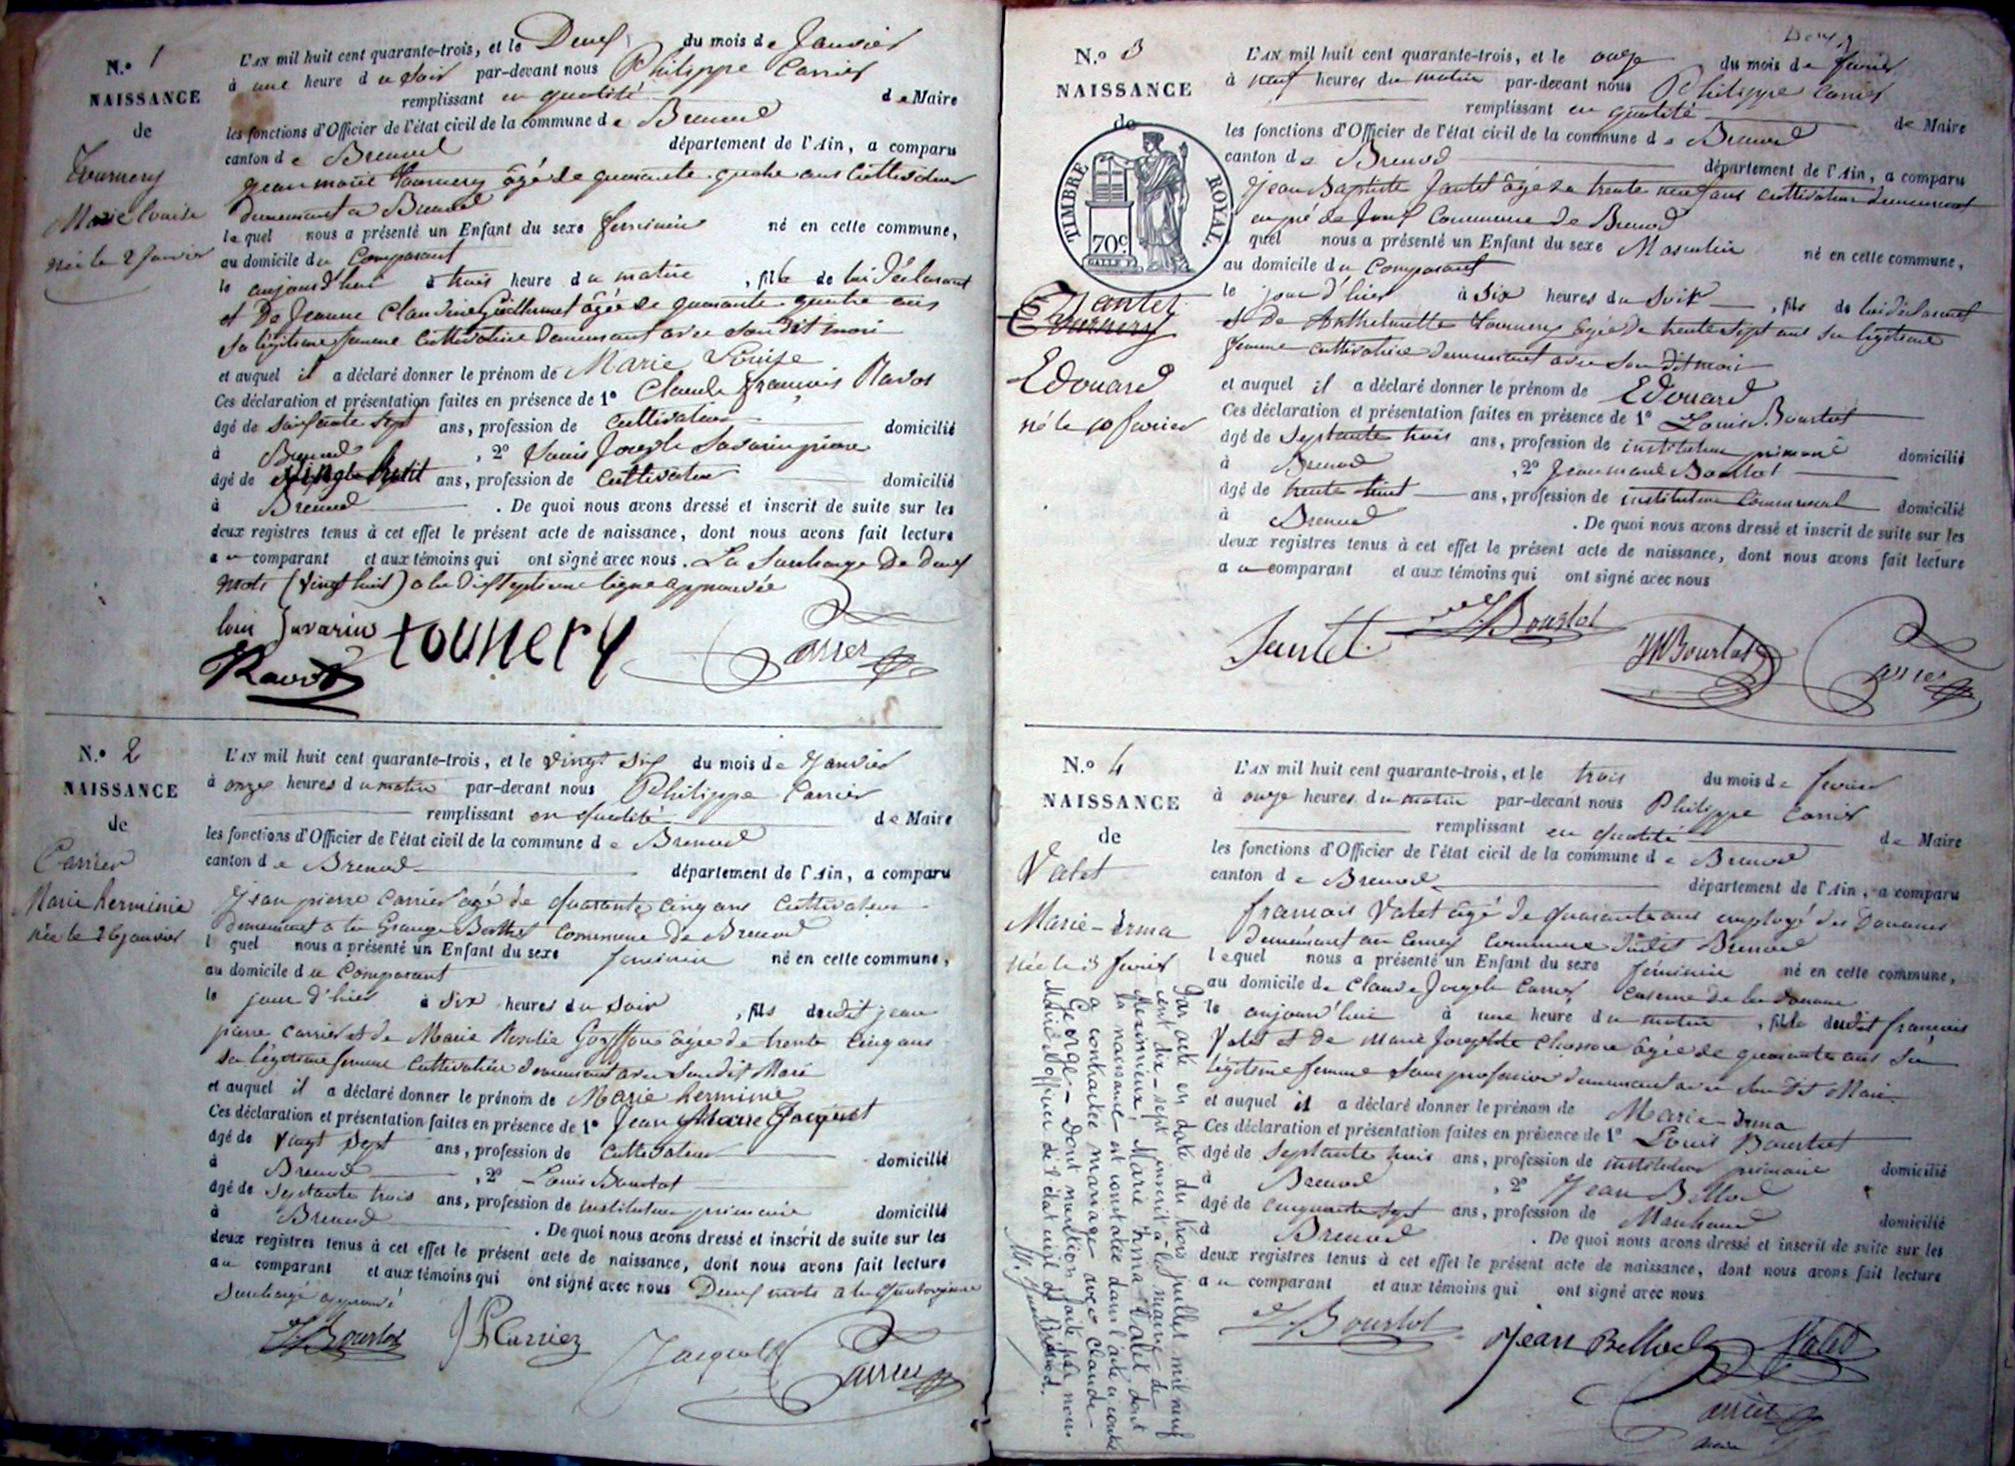 N.º 1
NAISSANCE
de
Tournery
Marie Louise
née le 2 janvier
L'AN mil huit cent quarante-trois, et le Deux du mois de Janvier
à une heure du soir par-devant nous Philippe Carrier
remplissant en qualité de Maire
les fonctions d'Officier de l'état civil de la commune de Brenod
canton de Brenod département de l'Ain, a comparu
Jean marie Tournery âgé de quarante quatre ans Cultivateur
demeurant a Brenod
lequel nous a présenté un Enfant du sexe feminin né en cette commune,
au domicile du Comparant
le aujourd'hui à trois heure du matin, fille de lui déclarant
et De Jeanne Claudine Guillermet âgée de quarante quatre ans
sa légitime femme Cultivatrice demeurant avec son dit mari
et auquel il a déclaré donner le prénom de Marie Louise
Ces déclaration et présentation faites en présence de 1º Claude François Ravot
âgé de soixante sept ans, profession de Cultivateur domicilié
à Brenod, 2º Louis Joseph Savarin pierre
âgé de vingt huit ans, profession de Cultivateur domicilié
à Brenod. De quoi nous avons dressé et inscrit de suite sur les
deux registres tenus à cet effet le présent acte de naissance, dont nous avons fait lecture
au comparant et aux témoins qui ont signé avec nous. La Surcharge De deux
mots (vingt huit) a la dixseptieme ligne approuvée
loui Savarin tounery Carrier
Ravot
N.º 2
NAISSANCE
de
Carrier
Marie herminie
née le 26 janvier
L'AN mil huit cent quarante-trois, et le vingt six du mois de Janvier
à onze heures du matin par-devant nous Philippe Carrier
remplissant en qualité de Maire
les fonctions d'Officier de l'état civil de la commune de Brenod
canton de Brenod département de l'Ain, a comparu
Jean pierre Carrier agé de quarante cinq ans Cultivateur
demeurant a la Grange Berthet Commune De Brenod
l quel nous a présenté un Enfant du sexe feminin né en cette commune,
au domicile du Comparant
le jour d'hier à six heures du soir, fils dudit jean
pierre carrier et de Marie Rosalie Goyffon âgée de trente cinq ans
sa légitime femme Cultivatrice demeurant avec son dit Mari
et auquel il a déclaré donner le prénom de Marie herminie
Ces déclaration et présentation faites en présence de 1º Jean Marie Jacquet
âgé de vingt sept ans, profession de Cultivateur domicilié
à Brenod, 2º Louis Bourlot
âgé de septante trois ans, profession de instituteur primaire domicilié
à Brenod. De quoi nous avons dressé et inscrit de suite sur les
deux registres tenus à cet effet le présent acte de naissance, dont nous avons fait lecture
au comparant et aux témoins qui ont signé avec nous Deux mots a la quatorzieme
surchargé approuvé
L Bourlot JP Carriez Jacquet Carrier
N.º 3
NAISSANCE
de
TIMBRE ROYAL.
70c
Jantet
Tournery
Edouard
né le 10 fevrier
L'AN mil huit cent quarante-trois, et le onze du mois de fevrier
à neuf heures du matin par-devant nous Philippe Carrier
remplissant en qualité de Maire
les fonctions d'Officier de l'état civil de la commune de Brenod
canton de Brenod département de l'Ain, a comparu
Jean Baptiste Jantet âgé de trente neuf ans cultivateur demeurant
Commune de Brenod
quel nous a présenté un Enfant du sexe Masculin né en cette commune,
au domicile du Comparant
le jour d'hier à six heures du soir, fils de lui déclarant
et De Anthelmette Tournery âgée de trente sept ans sa légitime
femme cultivatrice demeurant avec son dit mari
et auquel il a déclaré donner le prénom de Edouard
Ces déclaration et présentation faites en présence de 1º Louis Bourlot
âgé de septante trois ans, profession de instituteur primaire domicilié
à Brenod, 2º Jean marie Bourlot
âgé de trente huit ans, profession de instituteur Communal domicilié
à Brenod. De quoi nous avons dressé et inscrit de suite sur les
deux registres tenus à cet effet le présent acte de naissance, dont nous avons fait lecture
au comparant et aux témoins qui ont signé avec nous
Jantet L Bourlot JM Bourlot Carrier
N.º 4
NAISSANCE
de
Valet
Marie-Irma
née le 3 fevrier
L'AN mil huit cent quarante-trois, et le trois du mois de fevrier
à onze heures du matin par-devant nous Philippe Carrier
remplissant en qualité de Maire
les fonctions d'Officier de l'état civil de la commune de Brenod
canton de Brenod département de l'Ain, a comparu
francois Valet âgé de quarante ans employé des Douanes
demeurant au commune dudit Brenod
lequel nous a présenté un Enfant du sexe féminin né en cette commune,
au domicile de Claude Joseph Carrier caserne de la douane
le aujourd'hui à une heure du matin, fille dudit françois
Valet et de Marie Josephte âgée de quarante ans sa
légitime femme sans profession demeurant avec son dit Mari
et auquel il a déclaré donner le prénom de Marie-Irma
Ces déclaration et présentation faites en présence de 1º Louis Bourlot
âgé de septante trois ans, profession de instituteur primaire domicilié
à Brenod, 2º Jean Bellod
âgé de cinquante sept ans, profession de Marchand domicilié
à Brenod. De quoi nous avons dressé et inscrit de suite sur les
deux registres tenus à cet effet le présent acte de naissance, dont nous avons fait lecture
au comparant et aux témoins qui ont signé avec nous
L Bourlot Jean Bellod Valet
Carrier
maire
Par acte en date du trois juillet mil neuf
cent dix-sept inscrit à la mairie de
Meximieux, Marie Irma Valet dont
la naissance est constatée dans l'acte ci contre
a contracté mariage avec Claude
George - Dont mention faite par nous
Maire officier de l'état civil de Brenod.